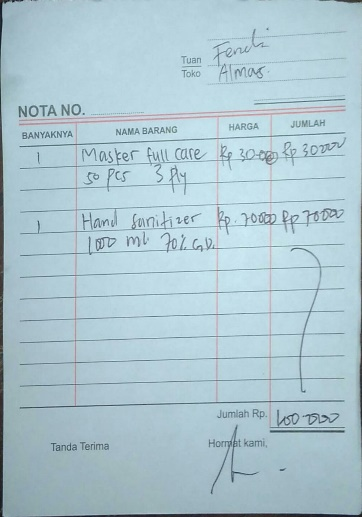 Tuan Fendi
Toko Almas.
NOTA NO. ....................
BANYAKNYA NAMA BARANG HARGA JUMLAH
1 Masker full care Rp 30.000 Rp 30000
50 pcs 3 ply
1 Hand sanitizer Rp. 70000 Rp 70000
1000 ml 70%
Jumlah Rp. 100.000
Tanda Terima Hormat kami,